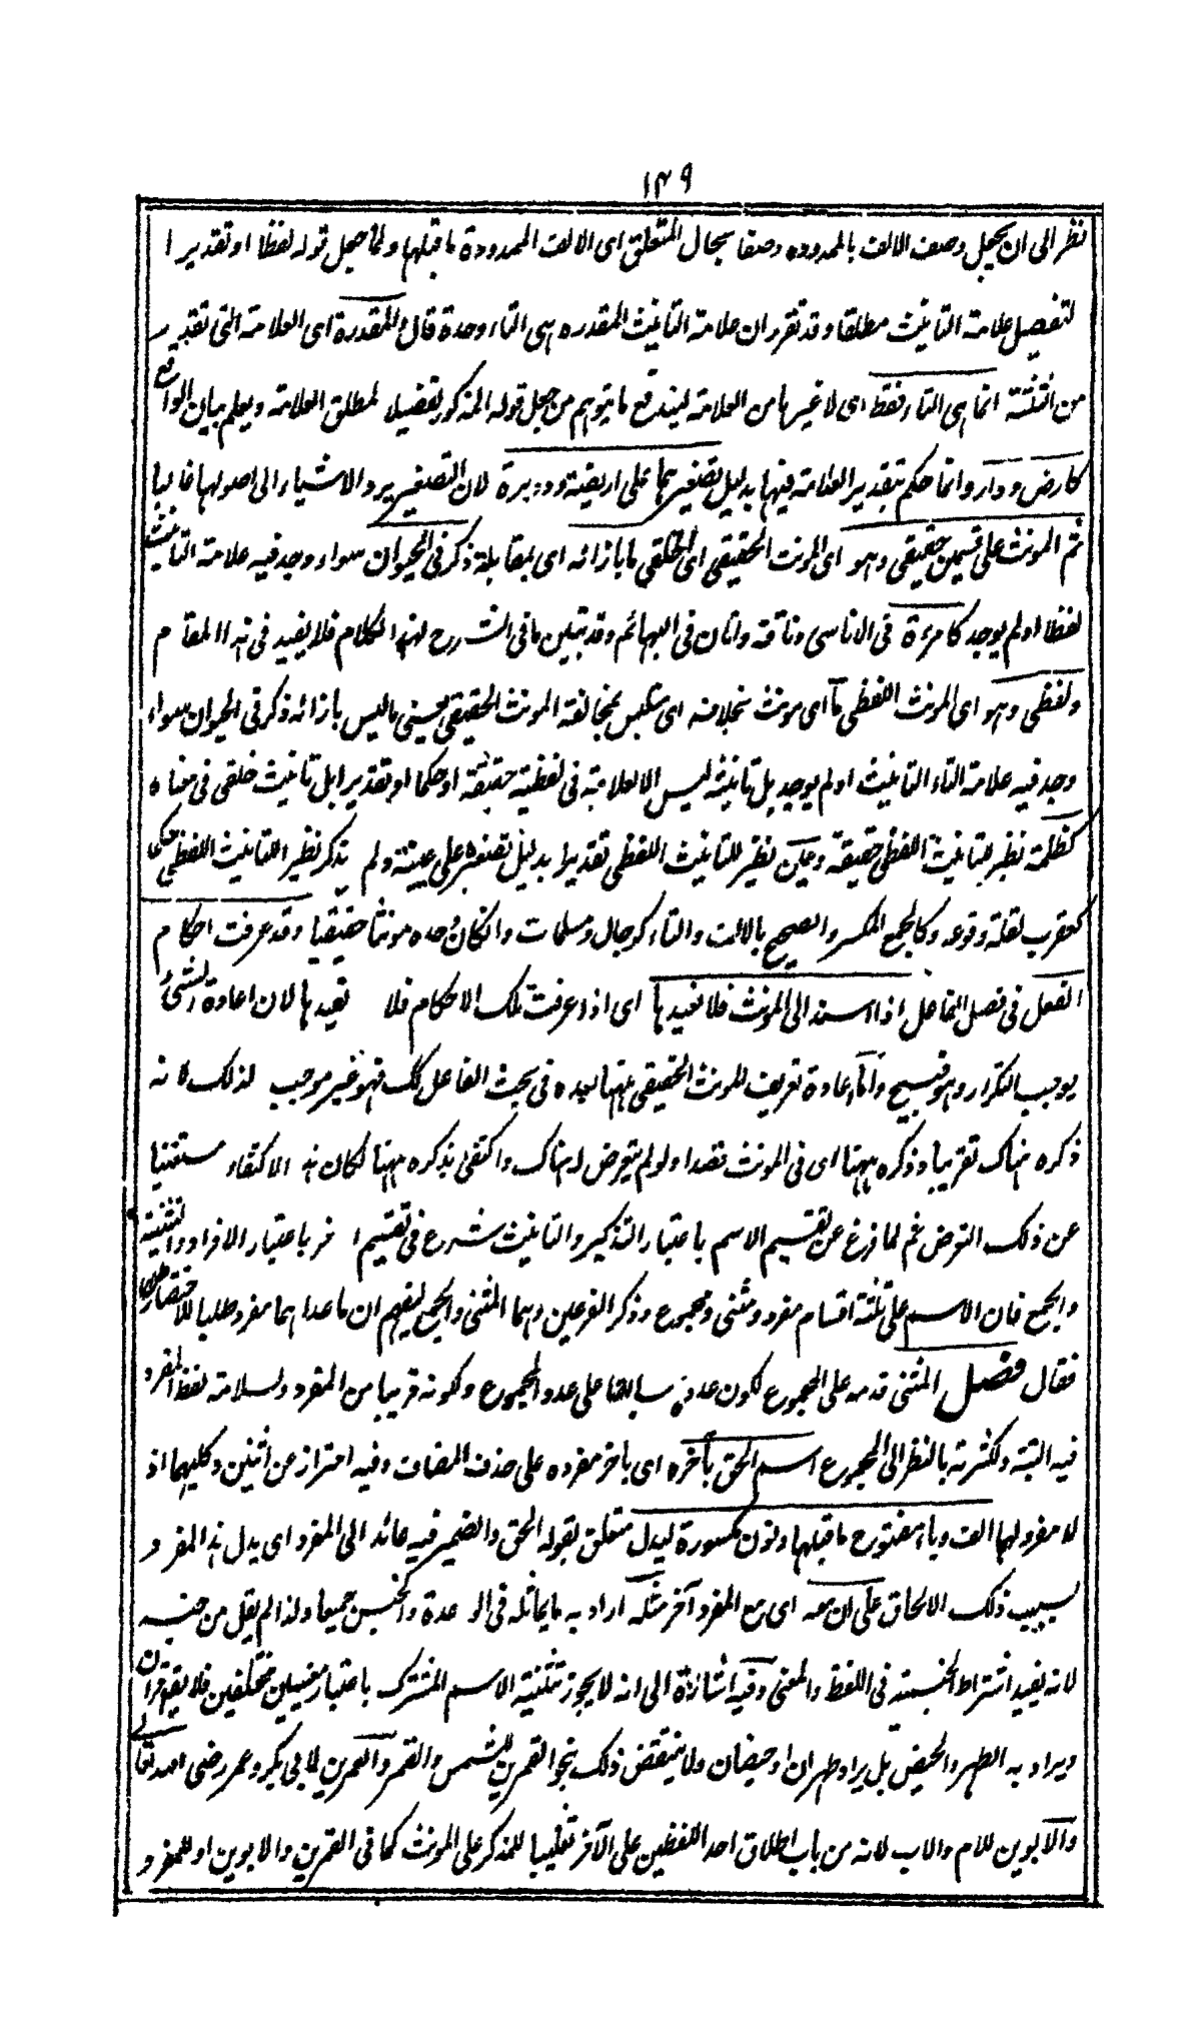 ١٣٩
نظر الى ان يجعل وصف الالف بالممدوده وصفا بحال المتعلق اى الالف الممدودة ما قبلها ولما جعل قوله لفظا او تقديرا
لتفصيل علامة التانيث مطلقا وقد تقرر ان علامة التانيث المقدره هى التاء وحدة قال والمقدرة اى العلامة التى تقدير
من انثة انما هى التاء فقط اى لا غيرها من العلامة ليندفع ما يتوهم من جعل قوله المذكور تفصيلا لمطلق العلامة ويعلم بيان الواقع
كارض ودار وانما حكم بتقدير العلامة فيها بدليل تصغيرهما على اريضة ودويرة لان التصغير يرد الاشياء الى اصولها غالبا
ثم المونث على قسمين حقيقى وهو اى المونث الحقيقى اى الخلقى ما بازائه اى بمقابلة ذكر فى الحيوان سواء وجد فيه علامة التانيث
لفظا او لم يوجد كامرءة فى الاناسى وناقة واتان فى البهائم وقد تبين ما فى الشرح لهذا الكلام فلا يفيد فى هذا المقام
ولفظى وهو اى المونث اللفظى ما اى مونث بخلافه اى متلبس بمخالفة المونث الحقيقى يعنى ما ليس بازائه ذكر فى الحيوان سواء
وجد فيه علامة التاء التانيث او لم يوجد بل تانيثه ليس الا لعلامة فى لفظية حقيقة او حكما او تقديرا بل تانيث خلقى فى معناه
كظلمة نظير لتانيث اللفظى حقيقة وعين نظير للتانيث اللفظى تقديرا بدليل تصغيره على عيينة ولم يذكر نظير التانيث اللفظى حكما
كعقرب لقلة وقوعه وكالجمع المكسر والصحيح بالالف والتاء كرجال ومسلمات وان كان وحده مونثا حقيقيا وقد عرفت احكام
الفعل فى فصل الفاعل اذا اسند الى المونث فلا نعيدها اى اذا عرفت تلك الاحكام فلا نعيدها لان اعادة الشئ
يوجب التكرار وهو قبيح واما اعادة تعريف المونث الحقيقى ههنا بعده فى بحث الفاعل كك فهو غير موجب لذلك لانه
ذكره هناك تقريبا وذكره ههنا اى فى المونث قصدا ولو لم يتعرض له هناك واكتفى بذكره ههنا لكان هذا الاكتفاء مستغنيا
عن ذلك التعرض ثم لما فرغ عن تقسيم الاسم باعتبار التذكير والتانيث شرع فى تقسيم اخر باعتبار الافراد والتثنية
والجمع فان الاسم على ثلثة اقسام مفرد ومثنى ومجموع وذكر الفرعين وهما المثنى والجمع ليفهم ان ما عداهما مفرد طلبا للاختصار
فقال فصل المثنى قدمه على المجموع لكون عدده سابقا على عدد المجموع ولكونه قريبا من المفرد ولسلامة لفظ المفرد
فيه البتة ولكثرته بالنظر الى المجموع اسم الحق بآخره اى باخر مفرده على حذف المضاف وفيه احتراز عن اثنين وكليهما اذ
لا مفرد لهما الف وياء مفتوح ما قبلها ونون مكسورة ليدل متعلق بقوله الحق والضمير فيه عائد الى المفرد اى يدل هذا المفرد
بسبب ذلك الالحاق على ان معه اى مع المفرد آخر مثله اراد به ما يماثله فى الوحدة والجنس جميعا ولذا لم يقل من جنسه
لانه يفيد اشتراط الجنسية فى اللفظ والمعنى وفيه اشارة الى انه لا يجوز تثنية الاسم المشترك باعتبار معنيين مختلفين فلا يقع قرآن
ويراد به الطهر والحيض بل يراد طهران او حيضان ولا ينتقض ذلك بنحو القمرين للشمس والقمر والعمرين لابى بكر وعمر رضى الله تعالى
والابوين للام والاب لانه من باب اطلاق احد اللفظين على الآخر تغليبا للمذكر على المونث كما فى القمرين والابوين او للمفرد